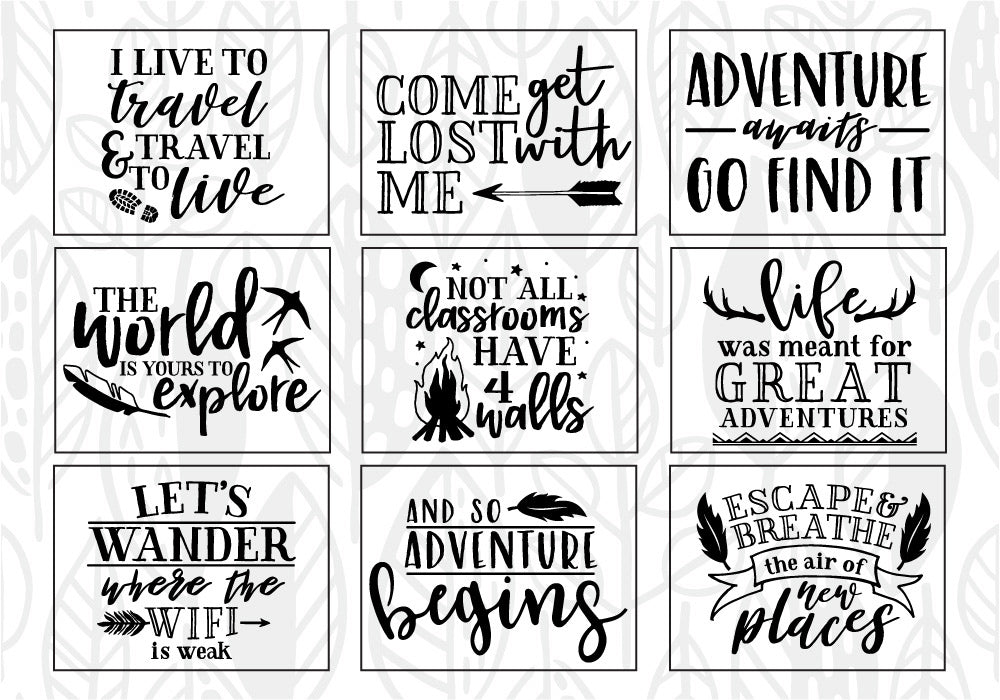 I LIVE TO
travel
& TRAVEL
TO live
COME get
LOST with
ME
ADVENTURE
awaits
GO FIND IT
THE
world
IS YOURS TO
explore
NOT ALL
classrooms
HAVE
4
walls
life
was meant for
GREAT
ADVENTURES
LET'S
WANDER
where the
WIFI
is weak
AND SO
ADVENTURE
begins
ESCAPE &
BREATHE
the air of
new
places